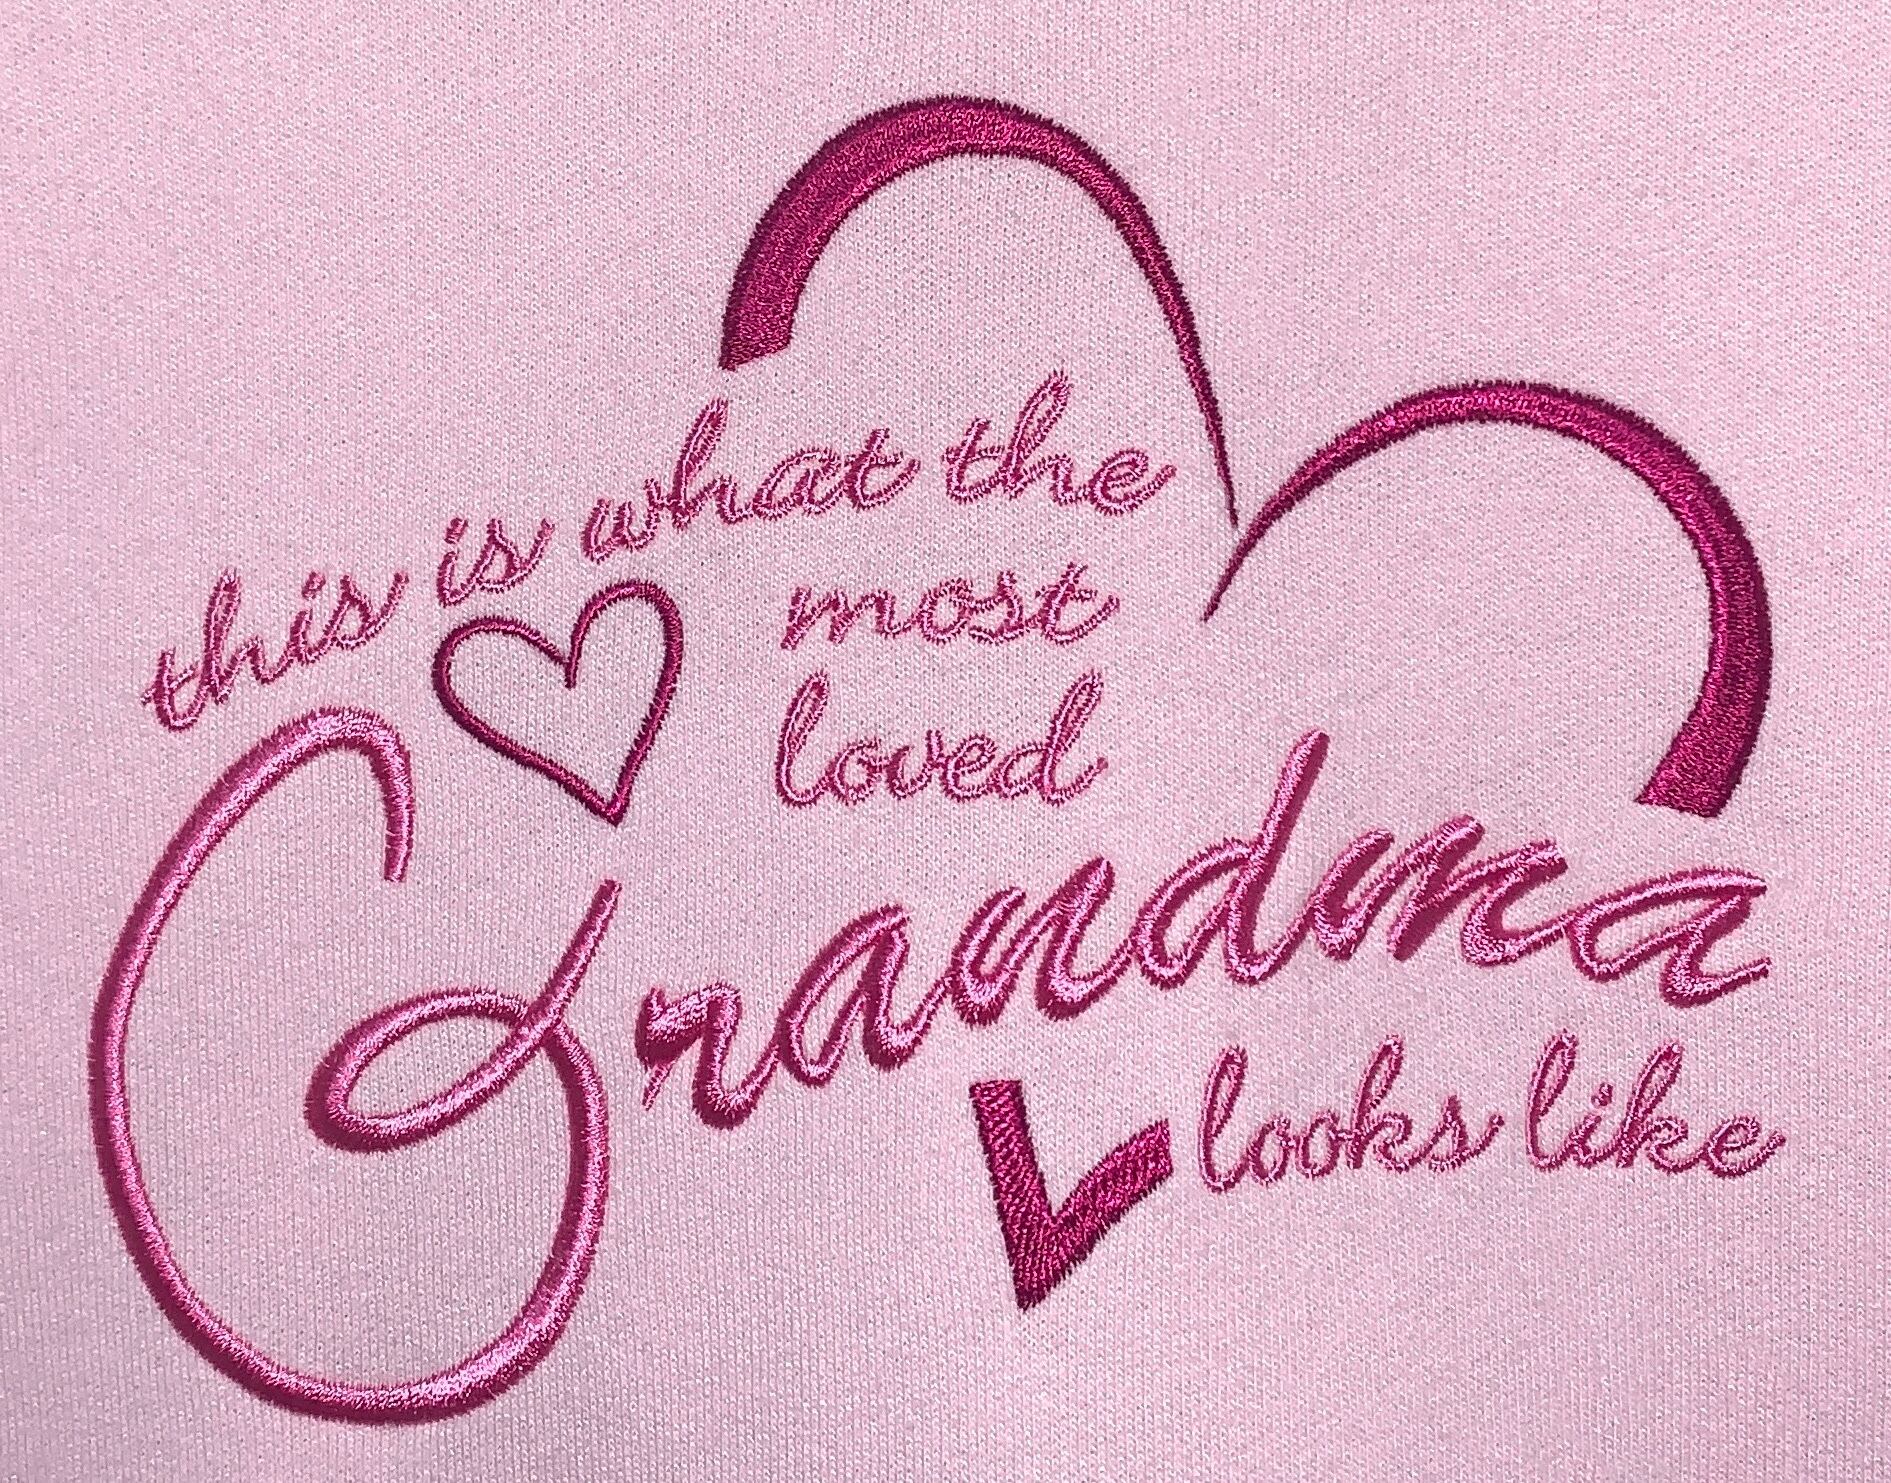 this is what the
most
loved
Grandma
looks like